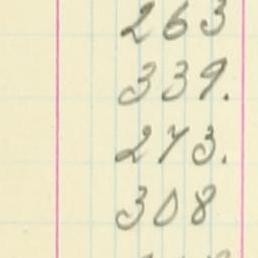 263
339.
273.
308